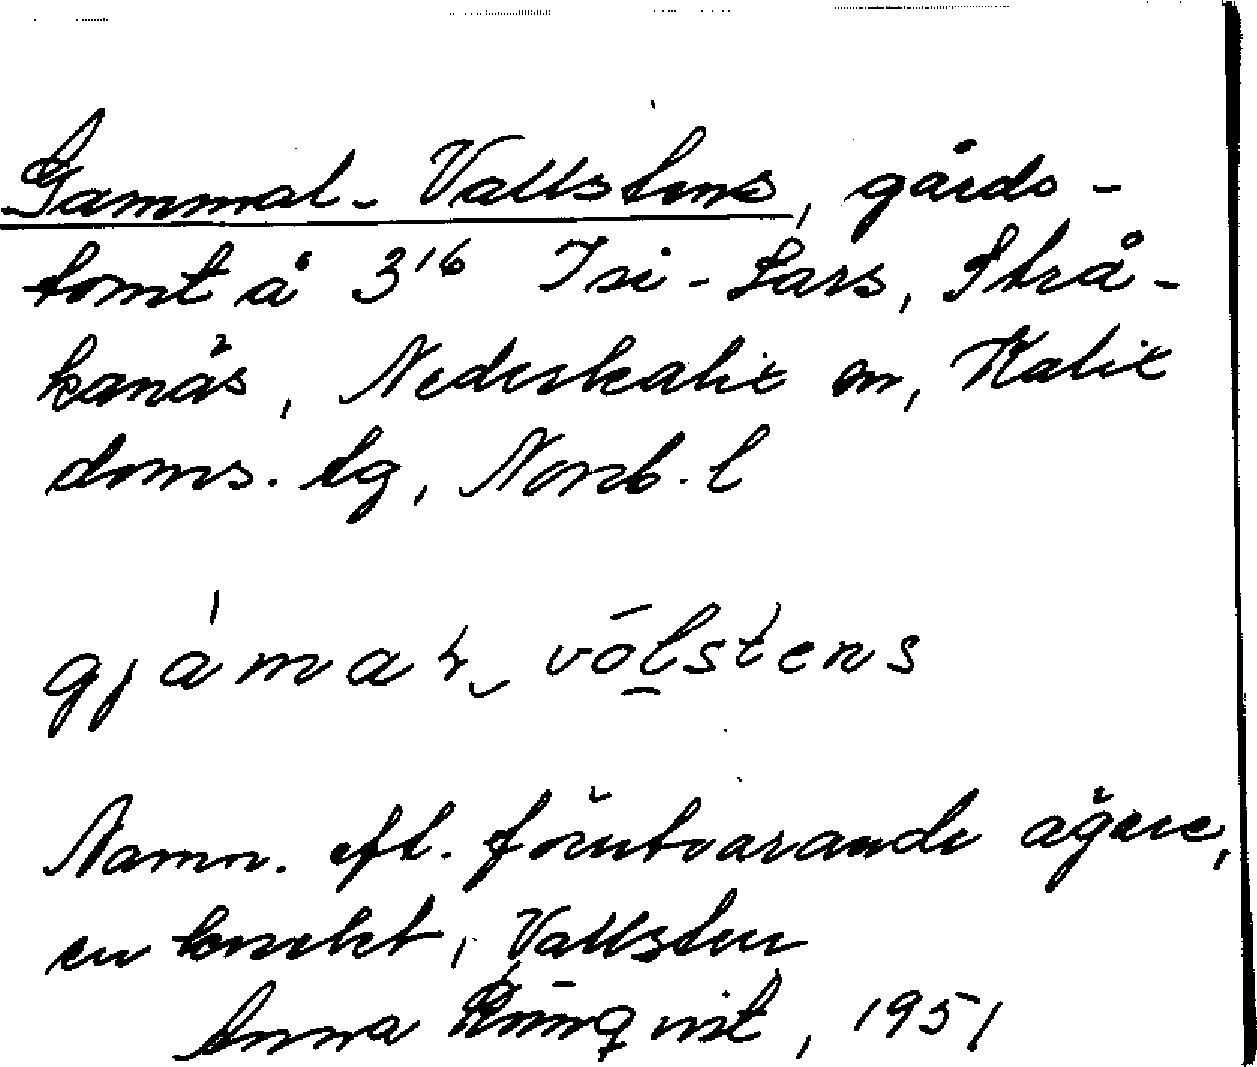 Gammal-Vallstens, gårds-
tomt å 3¹⁶ Isi-Lars, Strå-
kanäs, Nederkalix sn, Kalix
doms. tg, Norrb. l
gjámaḷ võlstens
Namn. eft. förutvarande ägare,
en knekt, Vallsten
Anna Rönnqvist, 1951